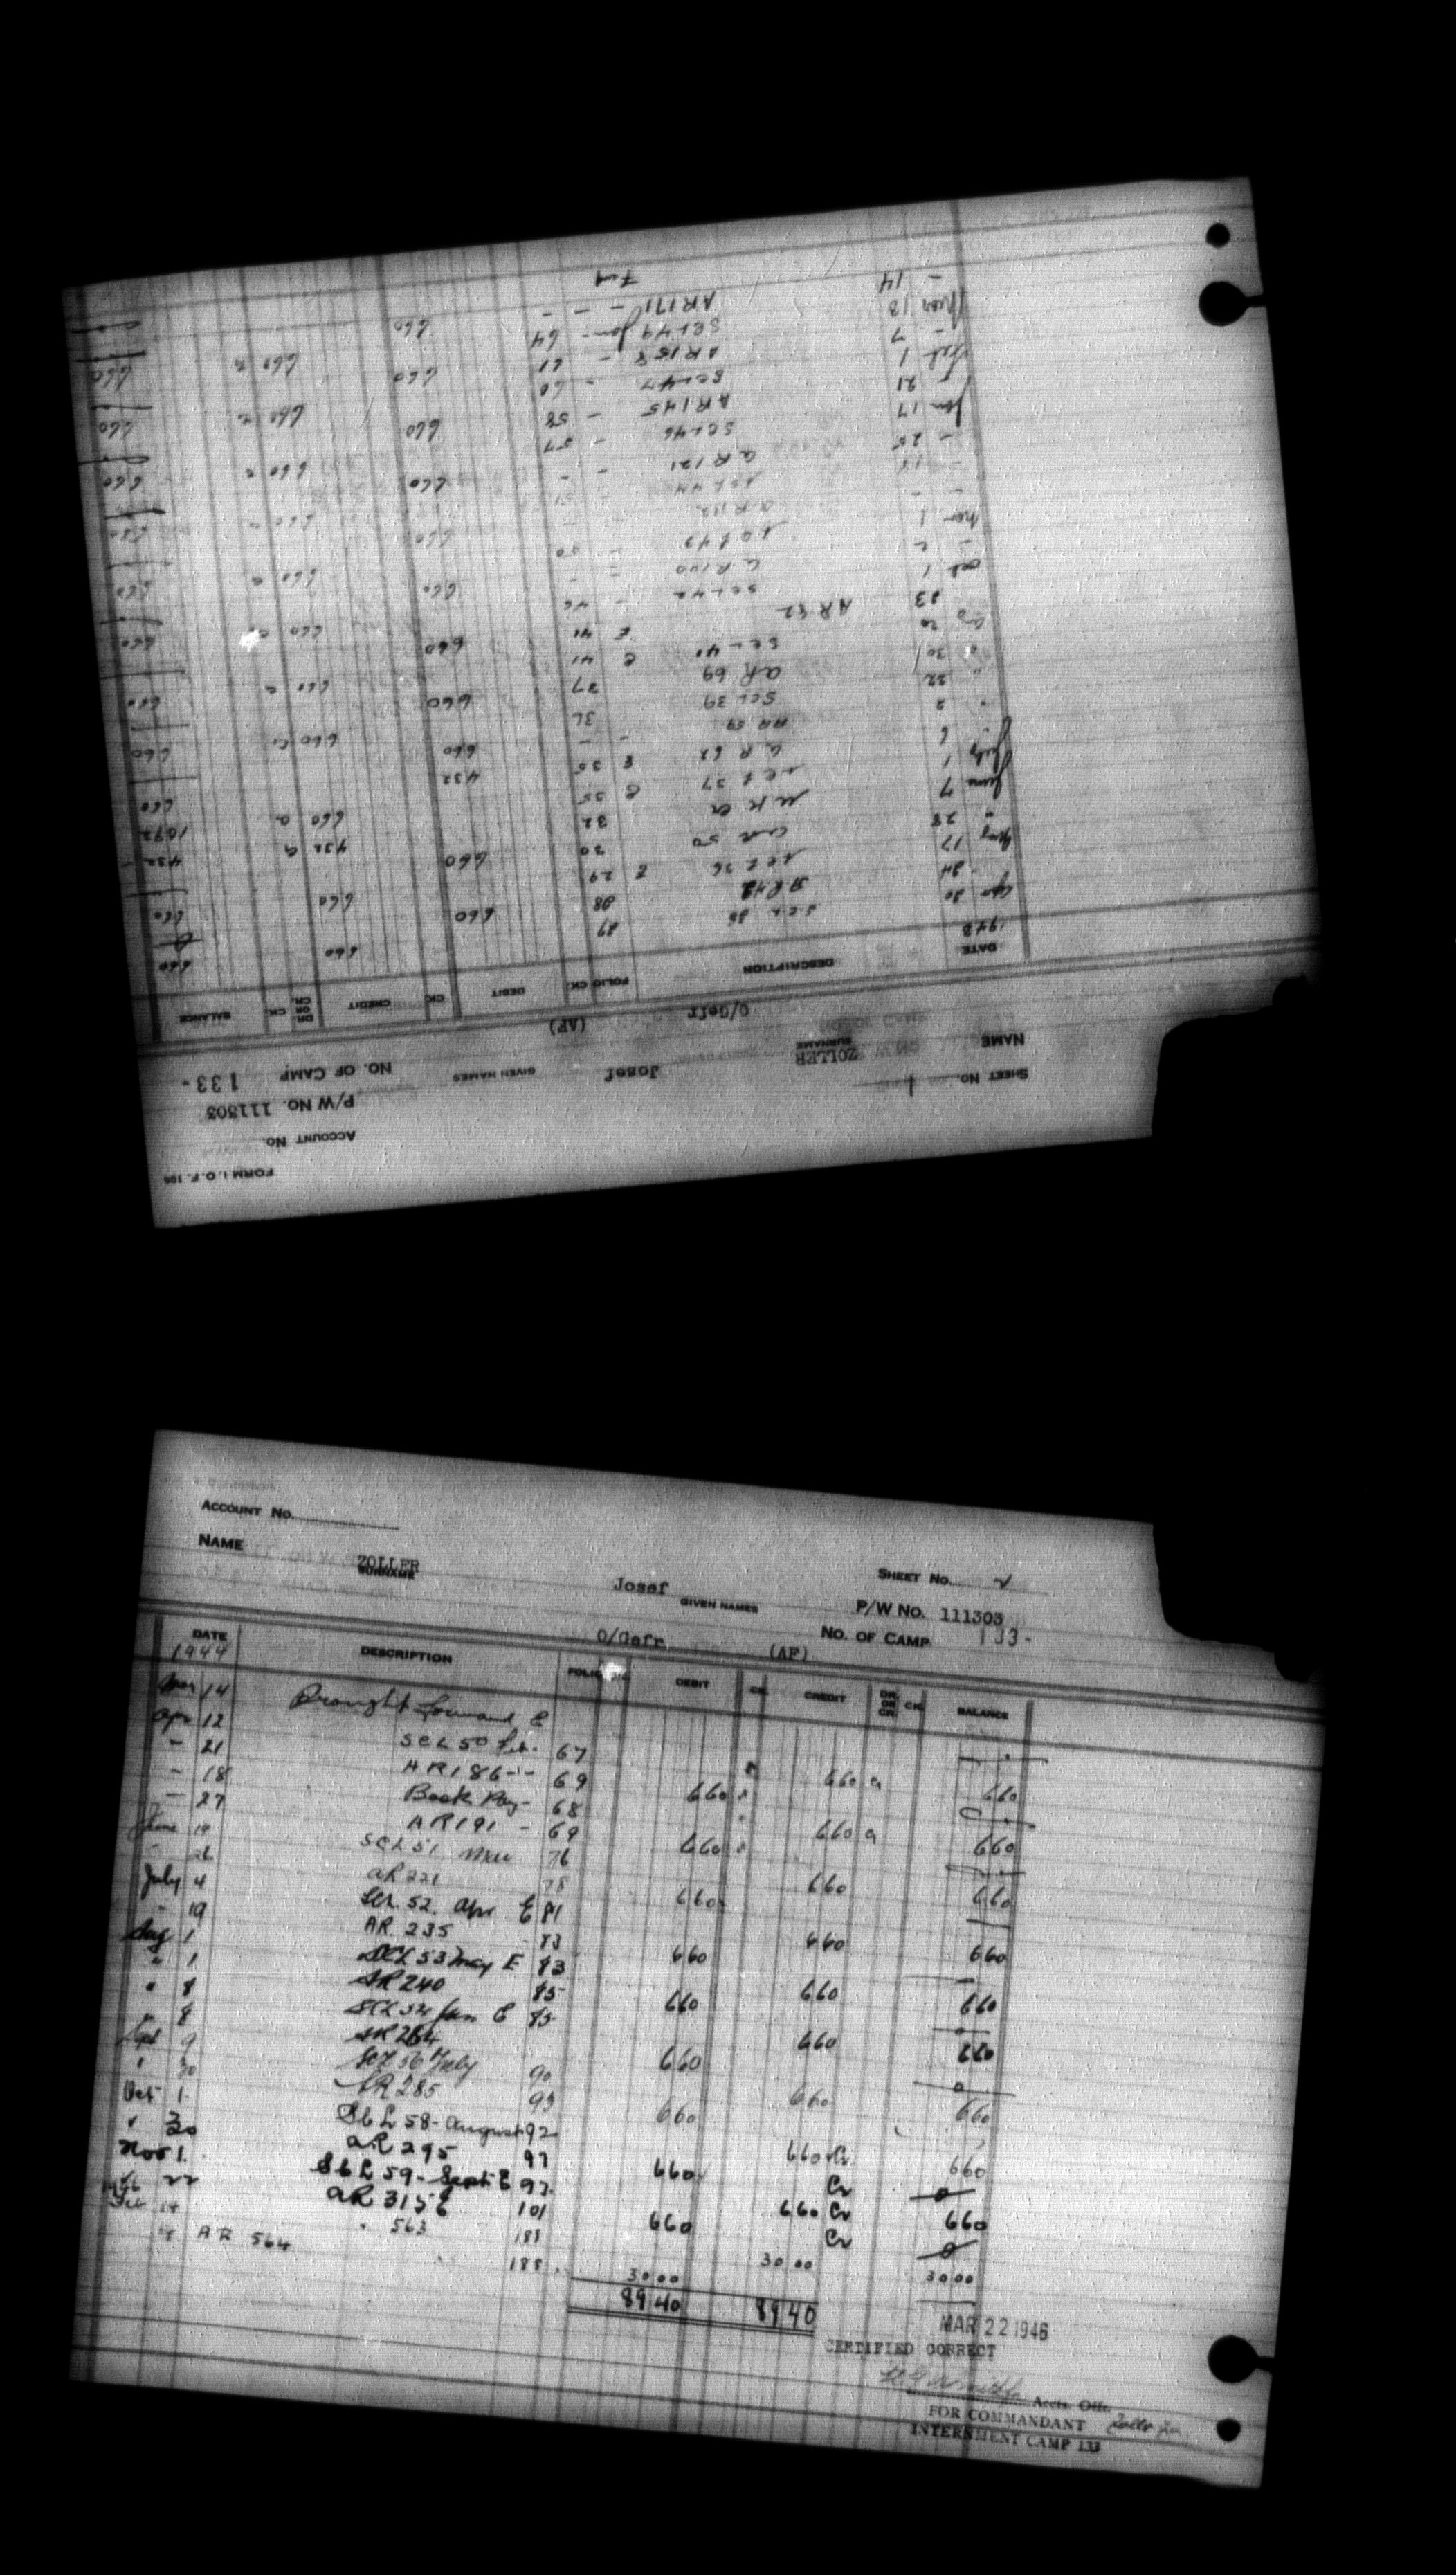 FORM I.O.F. 106
ACCOUNT No.
P/W No. 111303
SHEET No. 1
NAME ZOLLER Josef NO. OF CAMP 133-
SURNAME GIVEN NAMES
O/Gefr (AF)
DATE DESCRIPTION FOLIO CK. DEBIT CK. CREDIT DR. OR CR. CK. BALANCE
1943
Apr 20 SCL 35 660 660
24 AR 42 28 660
May 17 SCL 36 E 29 660 660
28 AR 50 30 660
June 7 32 432 432
July 1 SCL 37 E 35 660 1092
6 AR 62 E 35 432 660
2 AR 59 660
22 SCL 39 36 660 660
30 AR 69 37 660
Aug 20 SCL 41 E 41 660 660
23 AR 82 E 41 660
Oct 1 SCL 42 - 46 660 660
AR 100 660
Nov 1 SCL 43 - 50 660 660
AR 112 660
SCL 44 - 51 660 660
AR 121 - - 660
- 25 SCL 46 - 57 660 660
Jan 17 AR 145 - 58 660
21 SCL 47 - 60 660 660
Feb 1 AR 158 - 61 660
- 7 SCL 49 Jan - 64 660 660
Mar 13 AR 171 - - - 660
- 14 Fwd
ACCOUNT No.
NAME ZOLLER Josef SHEET No. 2
SURNAME GIVEN NAMES P/W No. 111303
O/Gefr (AF) No. OF CAMP 133-
DATE DESCRIPTION FOLIO CK. DEBIT CK. CREDIT DR. OR CR. CK. BALANCE
1944
Mar 14 Brought Forward E
Apr 12 SCL 50 Feb - 67 660 660
- 21 AR 186 - - 69 660
- 18 Book Pay - 68 660 660
- 27 AR 191 - 69 660
June 19 SCL 51 Mar 76 660 660
- 26 AR 221 78 660
July 4 SCL 52 Apr E 81 660 660
19 AR 235 83 660
Aug 1 SCL 53 May E 83 660 660
" 1 AR 240 85 660
" 8 SCL 54 Jun E 85 660 660
" 8 AR 264 660
Sept 9 SCL 56 July 90 660 660
" 30 AR 285 93 660
Oct 1 SCL 58 - August 92 660 Cr 660
30 AR 295 97 660 Cr 0
Nov 1 SCL 59 - Sept E 97 660 Cr 660
22 AR 315 E 101 660 Cr 0
1946
Feb 14 " 563 188 30 00 30 00
18 AR 564 188 30 00
89 40 89 40
MAR 22 1946
CERTIFIED CORRECT
Accts. Offr.
FOR COMMANDANT
INTERNMENT CAMP 133